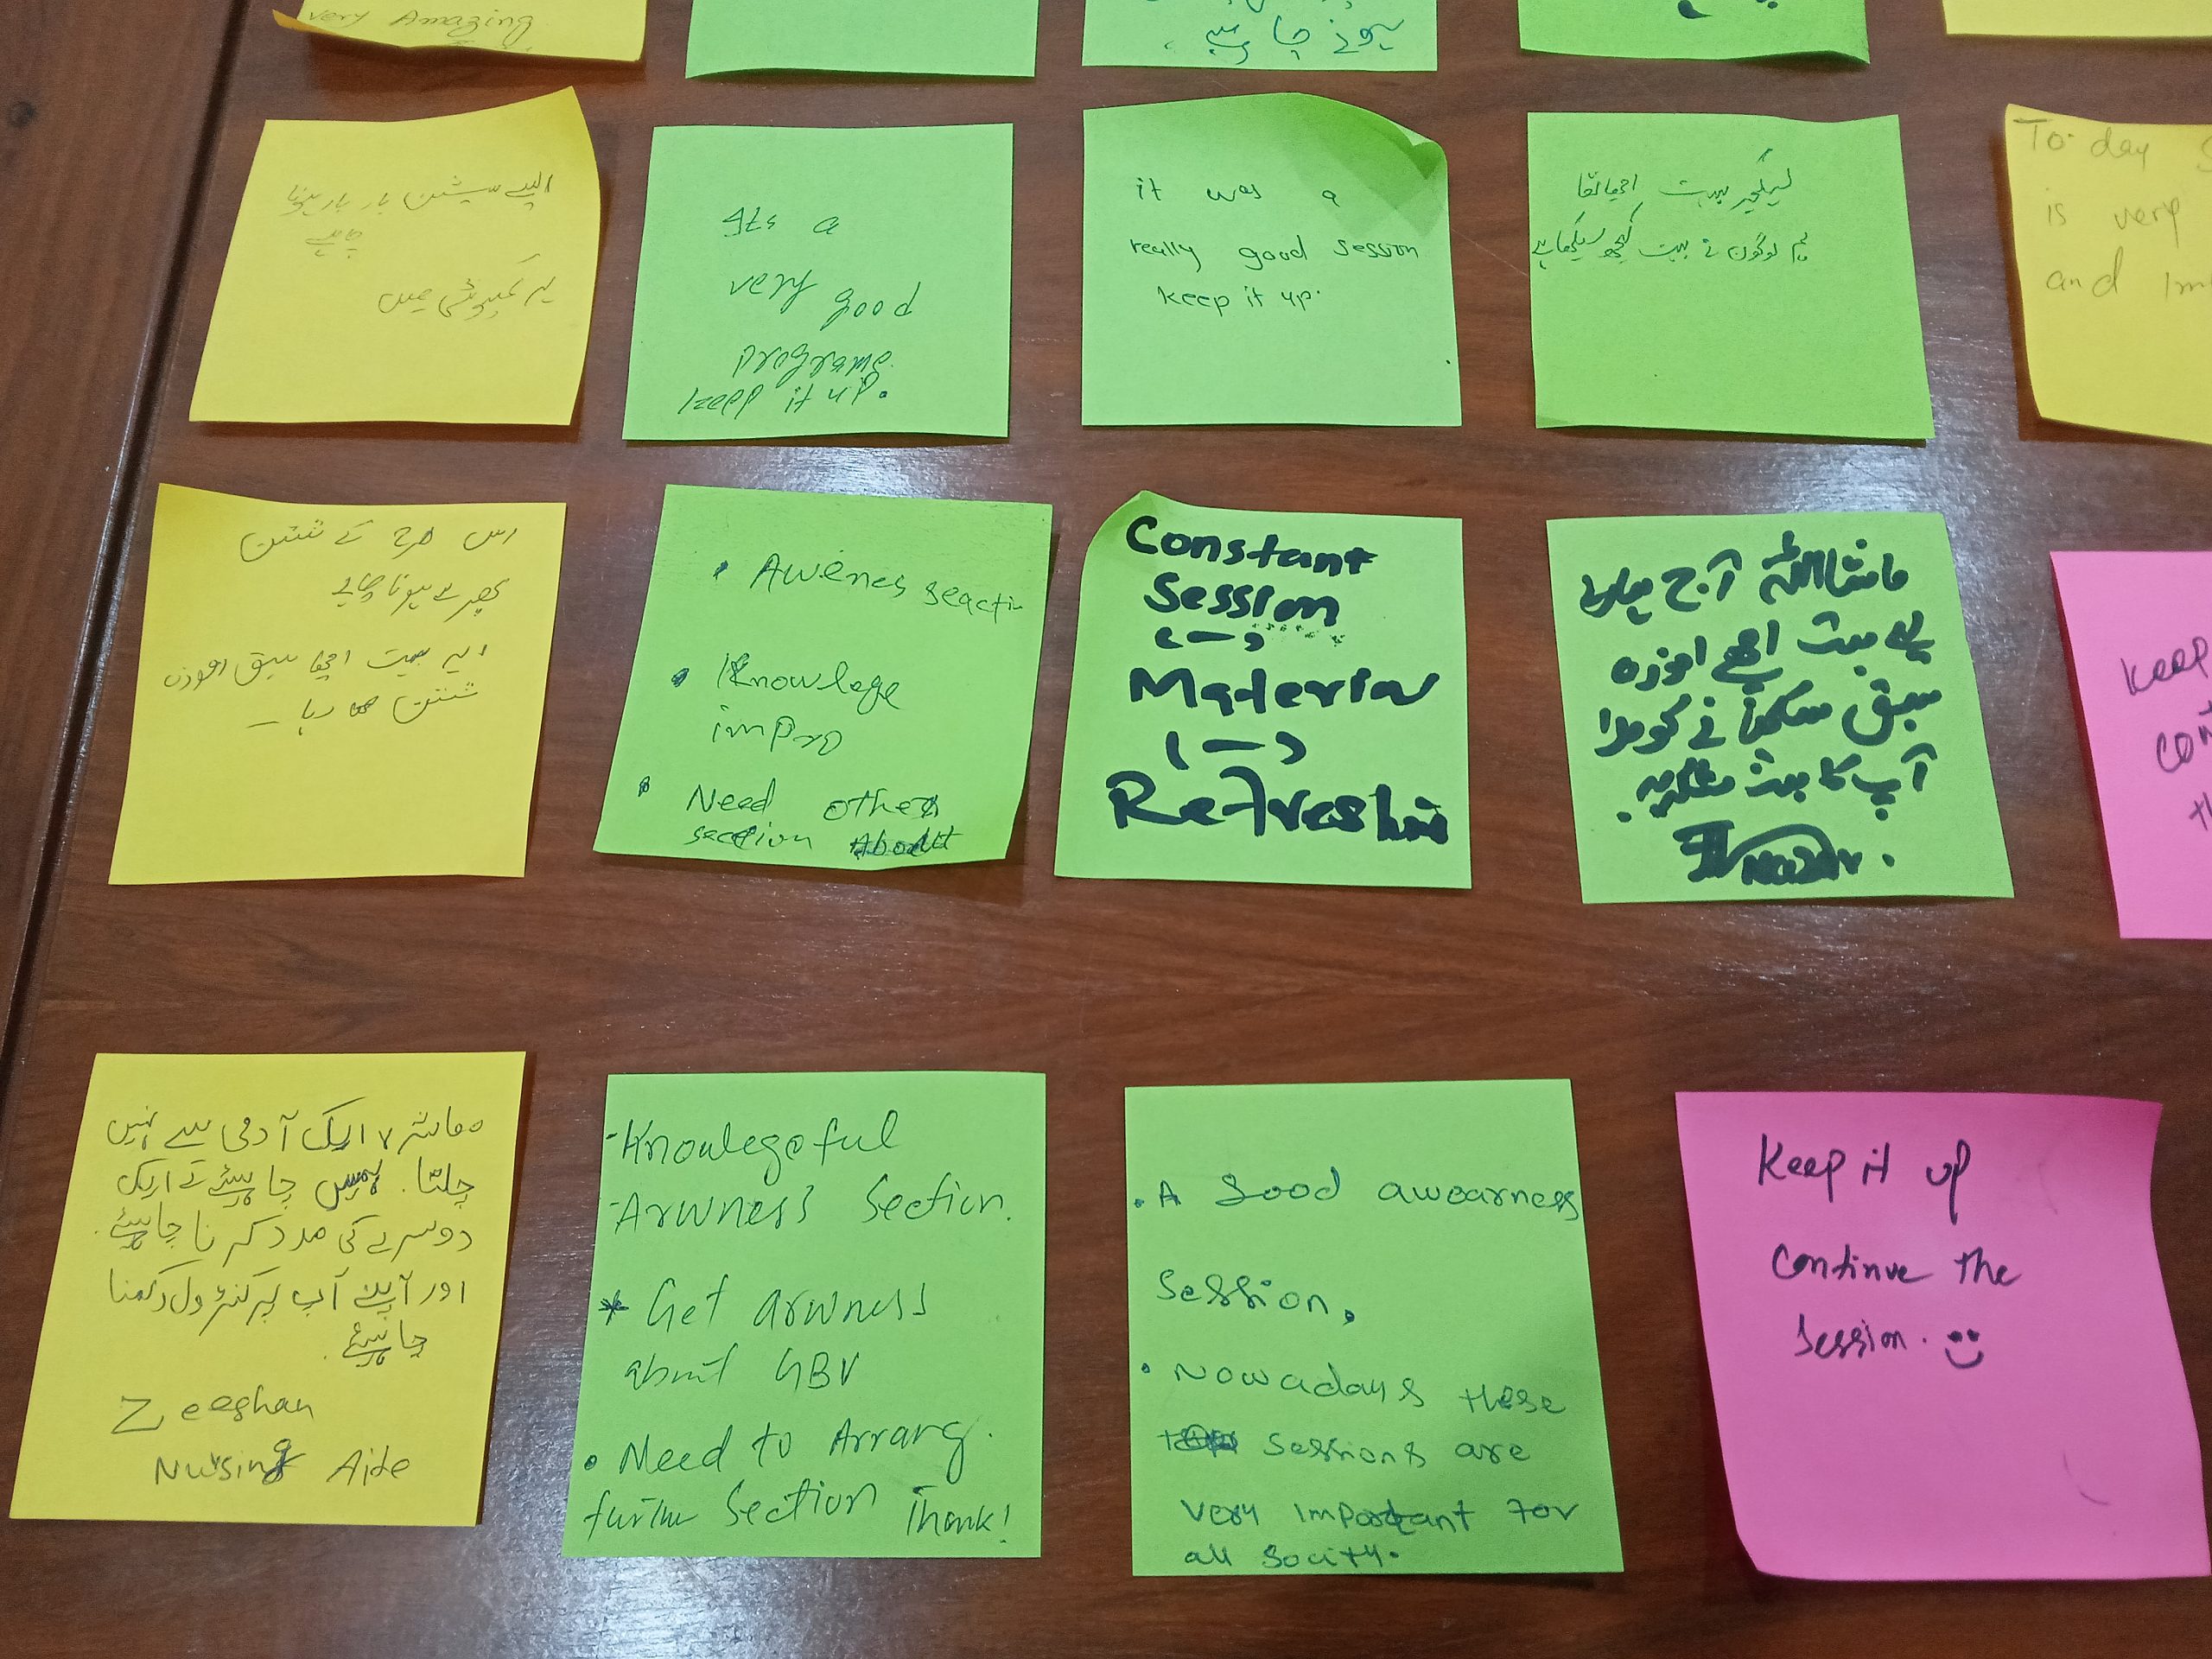 very Amazing
ہونے چاہیے
ایسے سیشن بار بار ہونا
چاہیے
ہر کمیونٹی میں
Its a
very good
programe.
keep it up.
it was a
really good session
keep it up.
لیکچر بہت اچھا تھا
ہم لوگوں نے بہت کچھ سیکھا ہے
To day
is very
and Im
اس طرح کے شش
پھر سے ہونا چاہیے
بہت اچھا سبق اموزہ
رہا
Awenes seacti
Knowlege
impro
Need other
section
Constant
Session
(-)
Material
(-)
Refreshi
ماشااللہ آج ہمارے
لیے بہت اچھے اموزہ
سبق سکھنے کو ملا
آپ کا بہت شکریہ.
Keep
con
th
معاشرہ ایک آدمی سے نہیں
چلتا. ہمیں چاہیئے کے ایک
دوسرے کی مدد کرنا چاہیئے.
اور آپنے آپ پر کنٹرول رکھنا
چاہیئے.
Zeeshan
Nursing Aide
-Knowlegeful
-Arwness Section.
* Get arwness
about GBV
• Need to Arrang.
further Section Thank!
• A Good awearness
session.
• Nowadays these
sessions are
very important for
all Socity.
Keep it up
continue the
session.